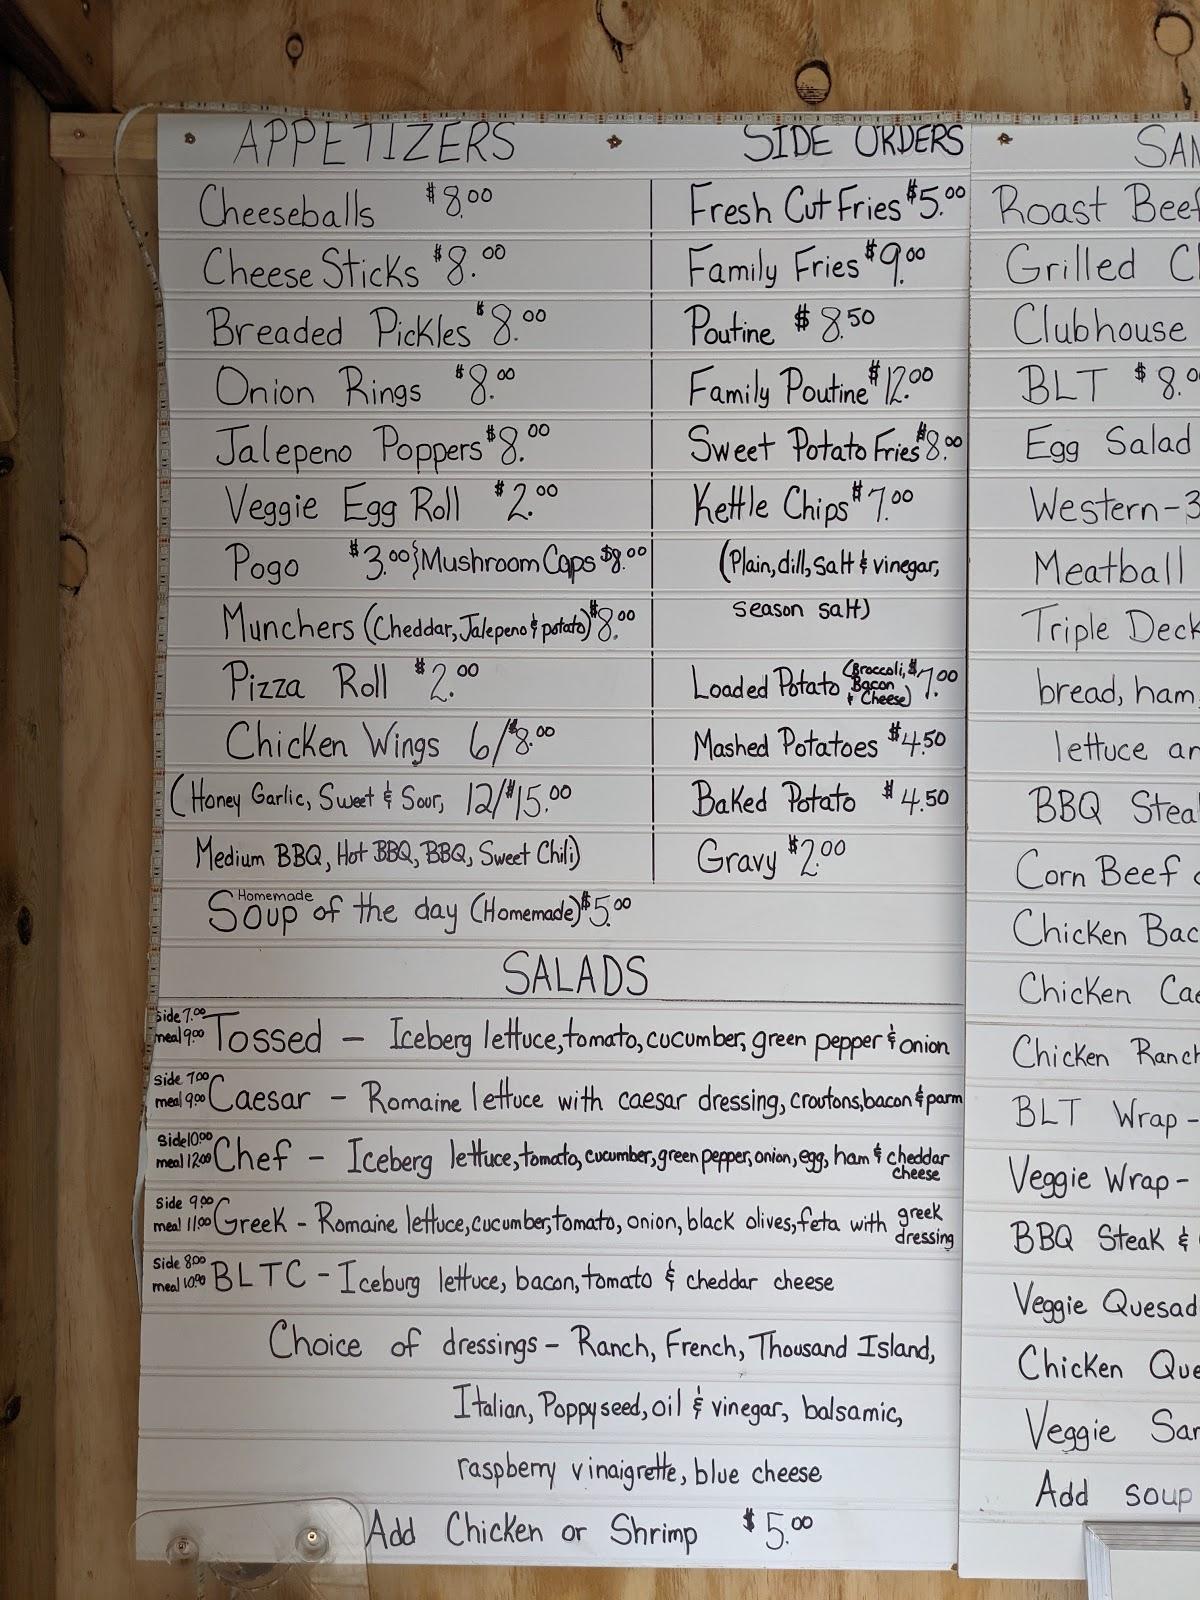 APPETIZERS
Cheeseballs $8.00
Cheese Sticks $8.00
Breaded Pickles $8.00
Onion Rings $8.00
Jalepeno Poppers $8.00
Veggie Egg Roll $2.00
Pogo $3.00 } Mushroom Caps $8.00
Munchers (Cheddar, Jalepeno & potato) $8.00
Pizza Roll $2.00
Chicken Wings 6/$8.00
(Honey Garlic, Sweet & Sour, 12/$15.00
Medium BBQ, Hot BBQ, BBQ, Sweet Chili)
Homemade
Soup of the day (Homemade) $5.00
SIDE ORDERS
Fresh Cut Fries $5.00
Family Fries $9.00
Poutine $8.50
Family Poutine $12.00
Sweet Potato Fries $8.00
Kettle Chips $7.00
(Plain, dill, salt & vinegar,
season salt)
Loaded Potato (Broccoli, Bacon & Cheese) $7.00
Mashed Potatoes $4.50
Baked Potato $4.50
Gravy $2.00
SALADS
side 7.00
meal 9.00 Tossed - Iceberg lettuce, tomato, cucumber, green pepper & onion
side 7.00
meal 9.00 Caesar - Romaine lettuce with caesar dressing, croutons, bacon & parm
side 10.00
meal 12.00 Chef - Iceberg lettuce, tomato, cucumber, green pepper, onion, egg, ham & cheddar cheese
side 9.00
meal 11.00 Greek - Romaine lettuce, cucumber, tomato, onion, black olives, feta with greek dressing
side 8.00
meal 10.00 BLTC - Iceburg lettuce, bacon, tomato & cheddar cheese
Choice of dressings - Ranch, French, Thousand Island,
Italian, Poppyseed, oil & vinegar, balsamic,
raspberry vinaigrette, blue cheese
Add Chicken or Shrimp $5.00
SAN
Roast Beef
Grilled
Clubhouse
BLT $8.0
Egg Salad
Western-3
Meatball
Triple Deck
bread, ham,
lettuce an
BBQ Stea
Corn Beef
Chicken Bac
Chicken Cae
Chicken Ranch
BLT Wrap -
Veggie Wrap -
BBQ Steak &
Veggie Quesad
Chicken Que
Veggie San
Add soup